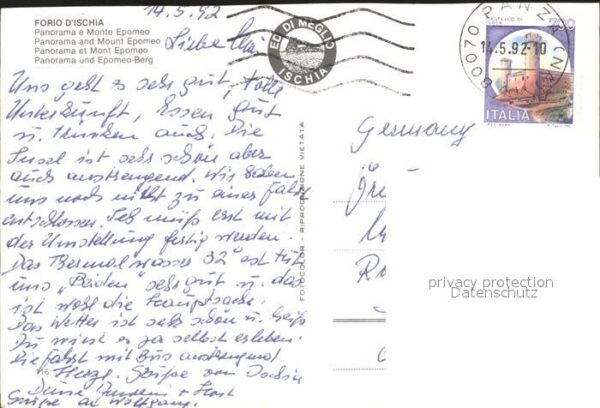 14.5.92
FORIO D'ISCHIA
Panorama e Monte Epomeo
Panorama and Mount Epomeo
Panorama et Mont Epomeo
Panorama und Epomeo-Berg
Liebe
ED. DI MEGLIO
ISCHIA
80070 PANZA
14.5.92-10
700
ITALIA
Uns geht es sehr gut, tolle
Unterkunft, Essen gut
u. trinken auch. Die
Insel ist sehr schön aber
auch anstrengend. Wir haben
uns noch nicht zu einer Fahrt
entschlossen. Ich muß erst mit
der Umstellung fertig werden.
Das Thermalwasser 32° ist für
uns „Beiden" sehr gut u. das
ist wohl die Hauptsache.
Das Wetter ist sehr schön u. heiß
Du wirst es ja selbst erleben.
die Fahrt mit Bus anstrengend
16 Herzl. Grüße von
Deine + Horst
Grüße an Wolfgang.
FOTOCOLOR - RIPRODUZIONE VIETATA
Germany
privacy protection
Datenschutz